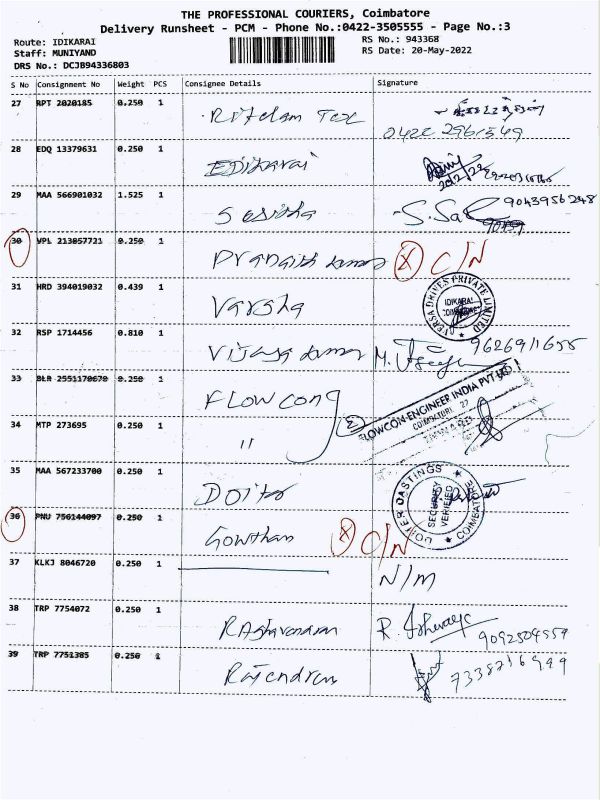 THE PROFESSIONAL COURIERS, Coimbatore
Delivery Runsheet - PCM - Phone No.:0422-3505555 - Page No.:3
Route: IDIKARAI
Staff: MUNIYAND
DRS No.: DCJB94336803
RS No.: 943368
RS Date: 20-May-2022
S No Consignment No Weight PCS Consignee Details Signature
27 RPT 2020185 0.250 1
0422 2961549
28 EDQ 13379631 0.250 1 Edikarai
29 MAA 566901032 1.525 1 9043956248
30 VPL 213057721 0.250 1 (X) C/N
31 HRD 394019032 0.439 1 Varsha
VERSA DRIVES PRIVATE LIMITED
IDIKARAI
32 RSP 1714456 0.810 1 Vijaya kumar 9626911655
33 BLR 2551170670 0.250 1 Flow cong
FLOWCON ENGINEER INDIA PVT
34 MTP 273695 0.250 1 "
35 MAA 567233700 0.250 1
SECURITY
VERIFIED
COIMBATORE
36 PNU 756144097 0.250 1 Gowtham (X) C/N
37 KLKJ 8046720 0.250 1 N/M
38 TRP 7754072 0.250 1 9092504557
39 TRP 7751385 0.250 1 Rajendran 7338716999